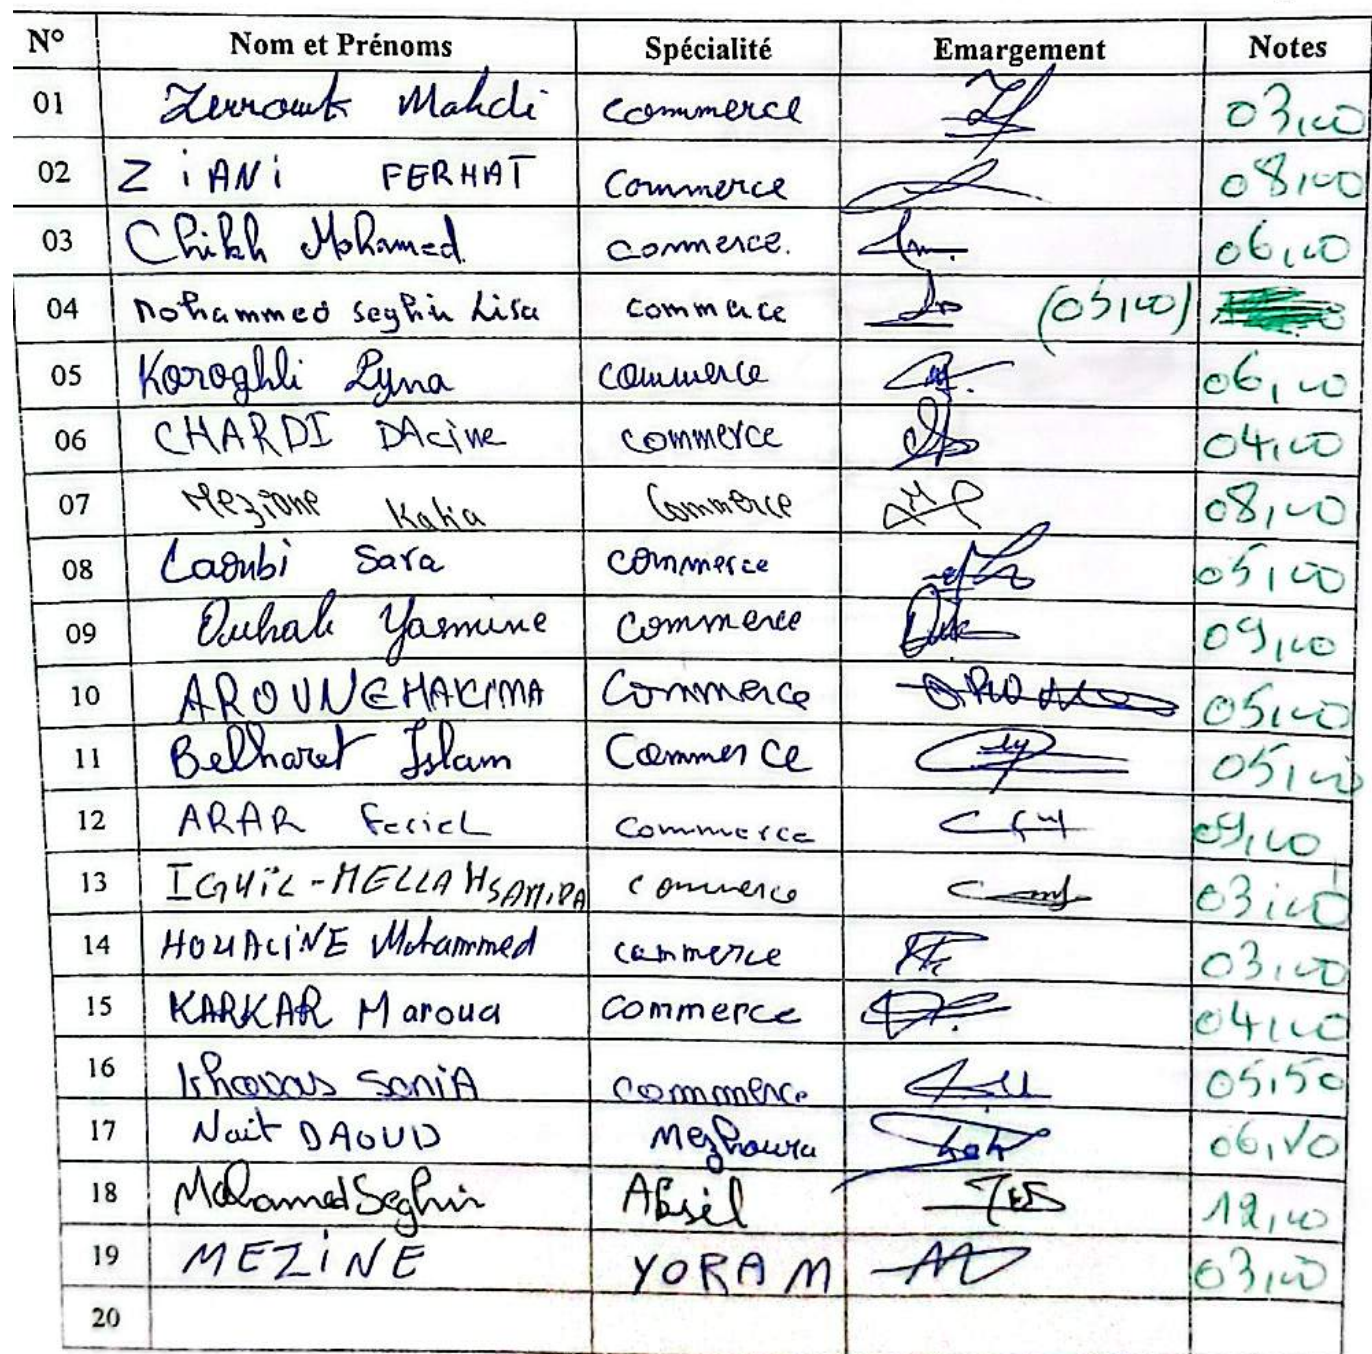 N° Nom et Prénoms Spécialité Emargement Notes
01 Zerrouk Mahdi commerce 03,00
02 ZiANi FERHAT Commerce 08,00
03 Chikh Mohamed commerce. 06,00
04 Mohammed seghir Lisa commerce (05,00)
05 Koroghli Lyna commerce 06,00
06 CHARDI DAcine commerce 04,00
07 Meziane Katia Commerce 08,00
08 Laoubi Sara commerce 05,00
09 Ouhab Yasmine Commerce 09,00
10 AROUNE HAKIMA Commerce 05,00
11 Belharet Islam Commerce 05,00
12 ARAR Feriel Commerce 09,00
13 IGUiL-MELLAH SAMiDA commerce 03,00
14 HOUACiNE Mohammed commerce 03,00
15 KARKAR Maroua commerce 04,00
16 Khovas SoniA commerce 05,50
17 Nait DAOUD Mezhoura
18 Mohamed Seghir Absil 12,00
19 MEZiNE YORAM 03,00
20